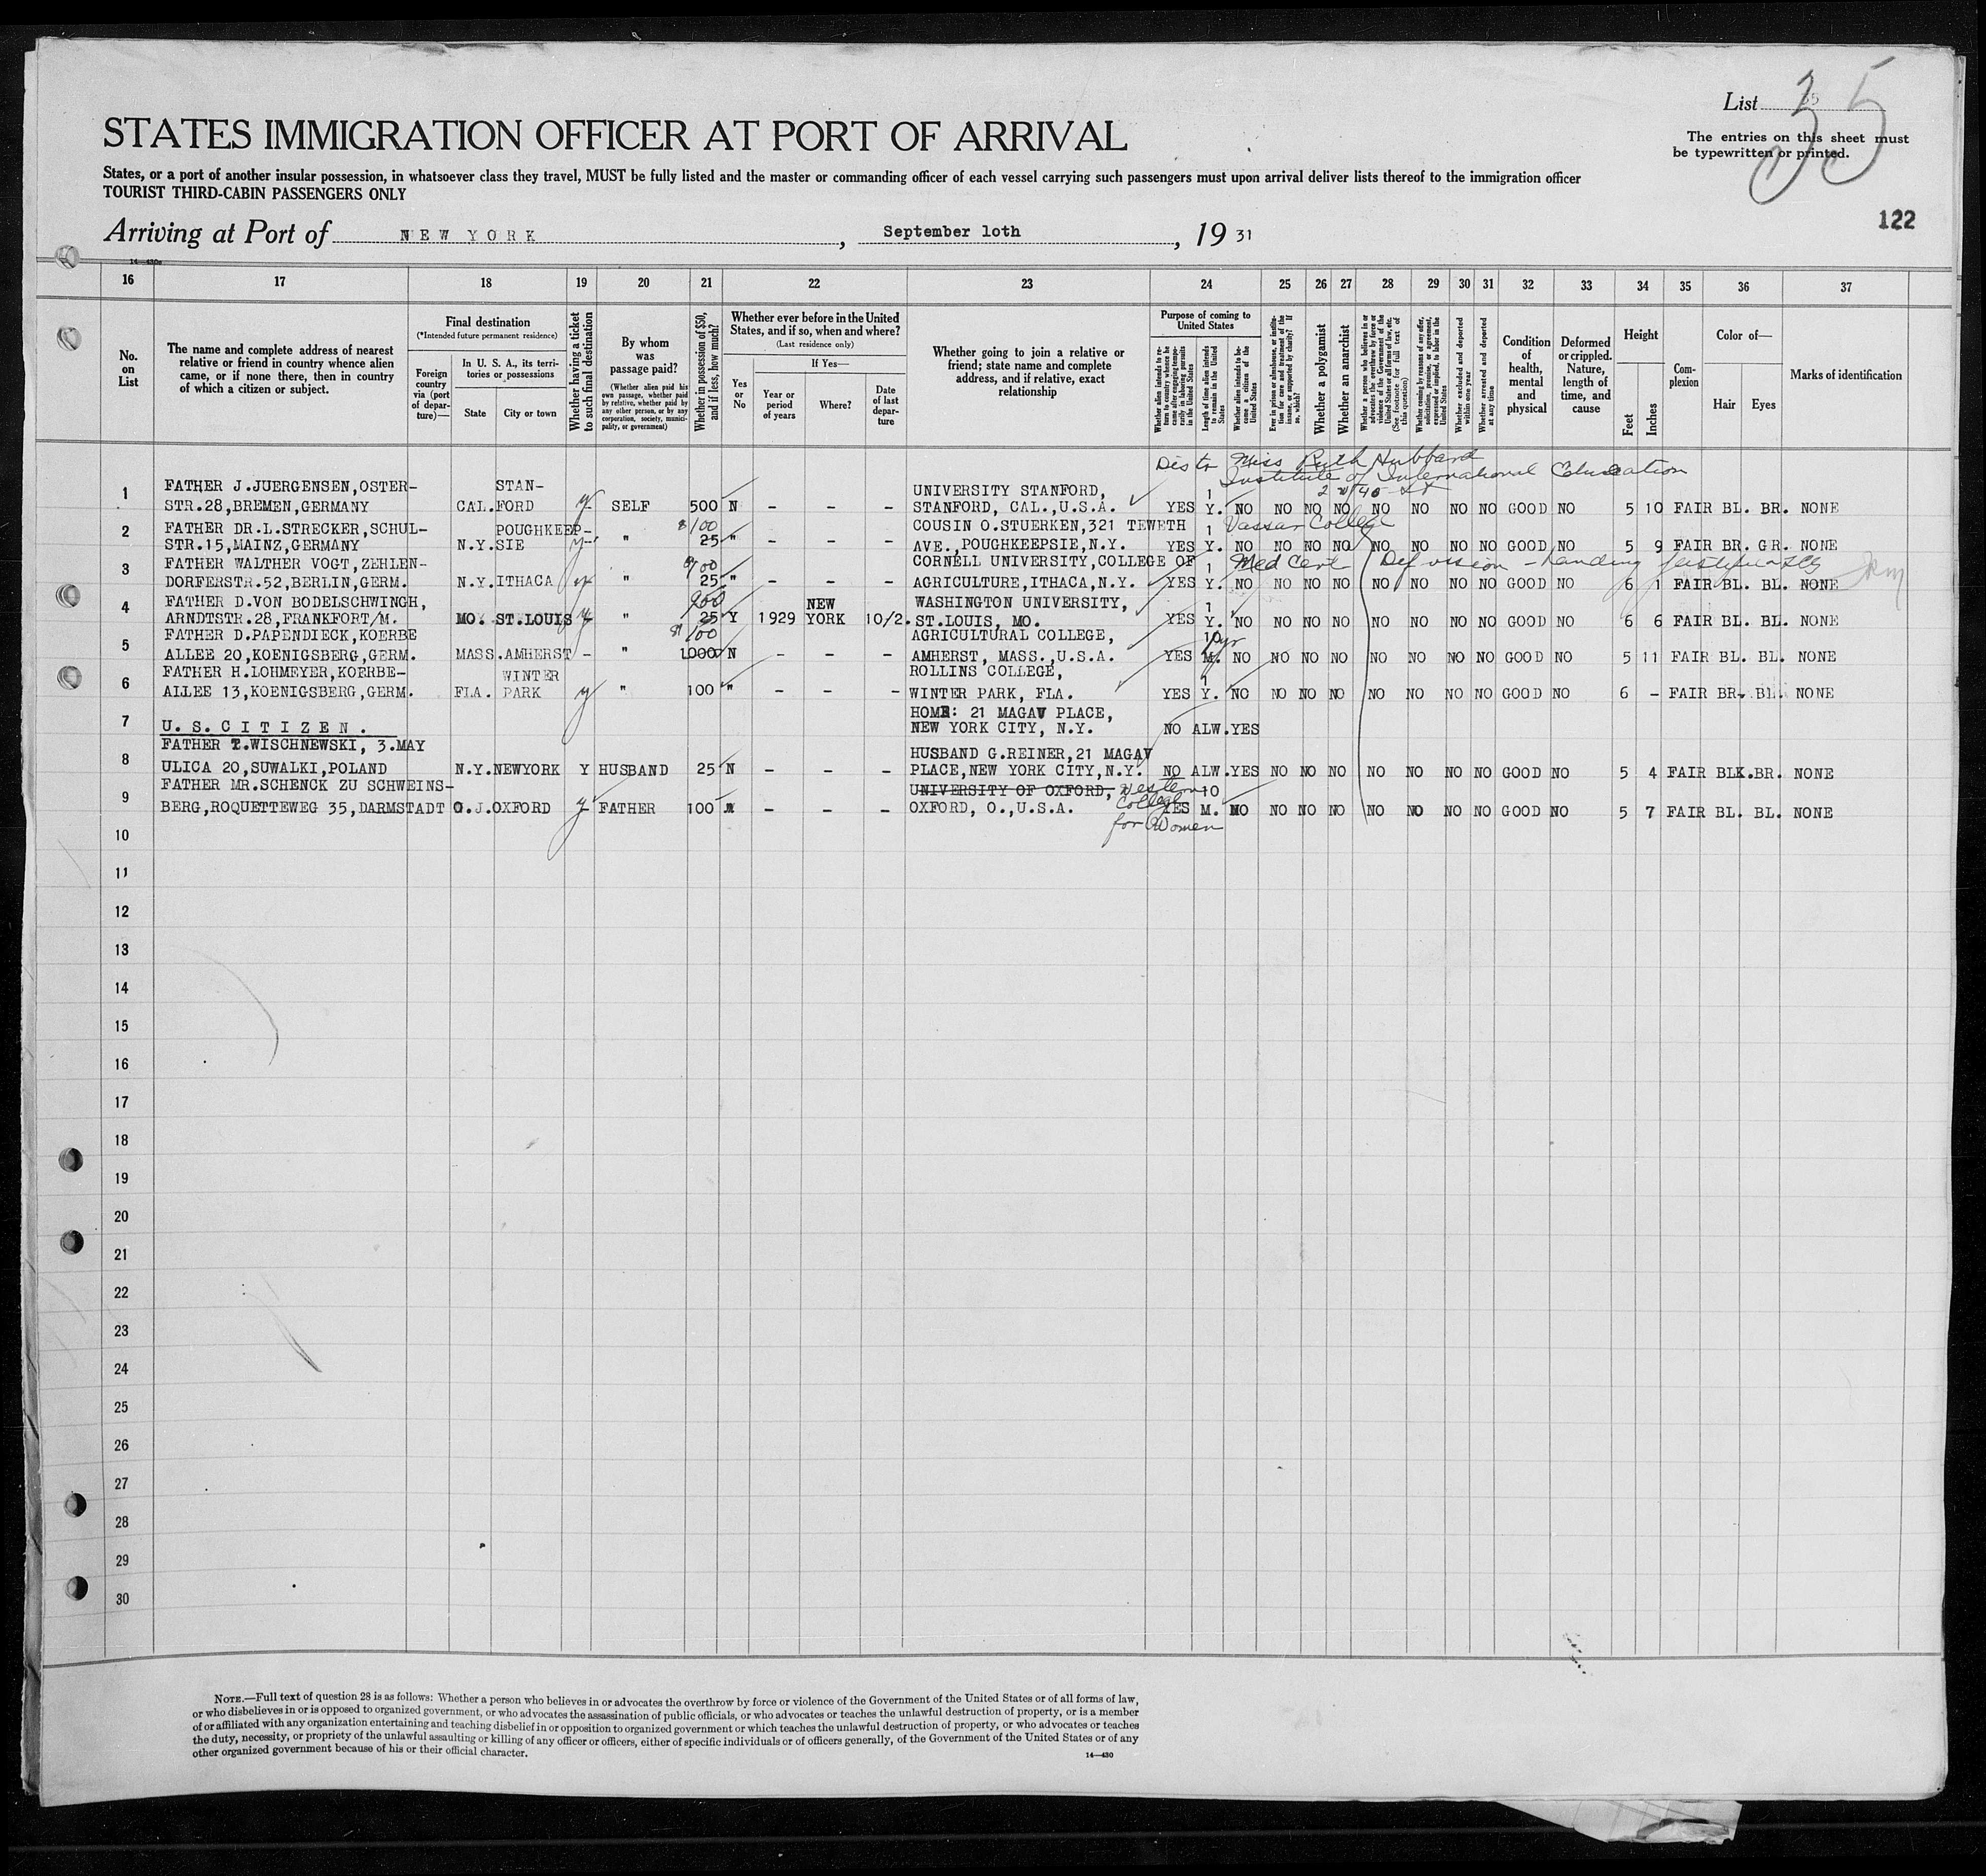 List 35
35
The entries on this sheet must
be typewritten or printed.
STATES IMMIGRATION OFFICER AT PORT OF ARRIVAL
States, or a port of another insular possession, in whatsoever class they travel, MUST be fully listed and the master or commanding officer of each vessel carrying such passengers must upon arrival deliver lists thereof to the immigration officer
TOURIST THIRD-CABIN PASSENGERS ONLY
122
Arriving at Port of NEW YORK, September loth, 19 31
16 17 18 19 20 21 22 23 24 25 26 27 28 29 30 31 32 33 34 35 36 37
No. on List
The name and complete address of nearest relative or friend in country whence alien came, or if none there, then in country of which a citizen or subject.
Final destination
(*Intended future permanent residence)
Foreign country via (port of departure)—
In U. S. A., its territories or possessions
State
City or town
Whether having a ticket to such final destination
By whom was passage paid?
(Whether alien paid his own passage, whether paid by relative, whether paid by any other person, or by any corporation, society, municipality, or government)
Whether in possession of $50, and if less, how much?
Whether ever before in the United States, and if so, when and where?
(Last residence only)
Yes or No
If Yes—
Year or period of years
Where?
Date of last departure
Whether going to join a relative or friend; state name and complete address, and if relative, exact relationship
Purpose of coming to United States
Whether alien intends to return to country whence he came after engaging temporarily in laboring pursuits in the United States
Length of time alien intends to remain in the United States
Whether alien intends to become a citizen of the United States
Ever in prison or almshouse, or institution for care and treatment of the insane, or supported by charity? If so, which?
Whether a polygamist
Whether an anarchist
Whether a person who believes in or advocates the overthrow by force or violence of the Government of the United States or all forms of law, etc. (See footnote for full text of this question)
Whether coming by reasons of any offer, solicitation, promise, or agreement, expressed or implied, to labor in the United States
Whether excluded and deported within one year
Whether arrested and deported at any time
Condition of health, mental and physical
Deformed or crippled. Nature, length of time, and cause
Height
Feet
Inches
Complexion
Color of—
Hair
Eyes
Marks of identification
Dis to Miss Ruth Hubbard
Institute of International Education
1 FATHER J.JUERGENSEN,OSTER- STAN- UNIVERSITY STANFORD, 1
STR.28,BREMEN,GERMANY CAL. FORD SELF 500 N - - - STANFORD, CAL.,U.S.A. YES Y. NO NO NO NO NO NO NO NO GOOD NO 5 10 FAIR BL. BR. NONE
2 FATHER DR.L.STRECKER,SCHUL- POUGHKEEP- COUSIN O.STUERKEN,321 TEWETH 1 Vassar College
STR.15,MAINZ,GERMANY N.Y. SIE " 25 " - - - AVE.,POUGHKEEPSIE,N.Y. YES Y. NO NO NO NO NO NO NO NO GOOD NO 5 9 FAIR BR. GR. NONE
3 FATHER WALTHER VOGT,ZEHLEN- CORNELL UNIVERSITY,COLLEGE OF 1 Med Cert Def vision
DORFERSTR.52,BERLIN,GERM. N.Y. ITHACA " 25 " - - - AGRICULTURE,ITHACA,N.Y. YES Y. NO NO NO NO NO NO NO NO GOOD NO 6 1 FAIR BL. BL. NONE
4 FATHER D.VON BODELSCHWINGH, 900 NEW WASHINGTON UNIVERSITY, 1
ARNDTSTR.28,FRANKFORT/M. MO. ST.LOUIS " 25 Y 1929 YORK 10/2. ST.LOUIS, MO. YES Y. NO NO NO NO NO NO NO NO GOOD NO 6 6 FAIR BL. BL. NONE
5 FATHER D.PAPENDIECK,KOERBE AGRICULTURAL COLLEGE, 10
ALLEE 20,KOENIGSBERG,GERM. MASS. AMHERST - " 1000 N - - - AMHERST, MASS.,U.S.A. YES M. NO NO NO NO NO NO NO NO GOOD NO 5 11 FAIR BL. BL. NONE
6 FATHER H.LOHMEYER,KOERBE- WINTER ROLLINS COLLEGE, 1
ALLEE 13,KOENIGSBERG,GERM. FLA. PARK " 100 " - - - WINTER PARK, FLA. YES Y. NO NO NO NO NO NO NO NO GOOD NO 6 - FAIR BR. BL. NONE
7 U.S.CITIZEN. HOME: 21 MAGAV PLACE,
NEW YORK CITY, N.Y. NO ALW. YES
8 FATHER T.WISCHNEWSKI, 3.MAY HUSBAND G.REINER,21 MAGAV
ULICA 20,SUWALKI,POLAND N.Y. NEWYORK Y HUSBAND 25 N - - - PLACE,NEW YORK CITY,N.Y. NO ALW. YES NO NO NO NO NO NO NO GOOD NO 5 4 FAIR BLK. BR. NONE
9 FATHER MR.SCHENCK ZU SCHWEINS- UNIVERSITY OF OXFORD, Western College for Women 10
BERG,ROQUETTEWEG 35,DARMSTADT O.J. OXFORD FATHER 100 - - - OXFORD, O.,U.S.A. YES M. NO NO NO NO NO NO NO NO GOOD NO 5 7 FAIR BL. BL. NONE
10
11
12
13
14
15
16
17
18
19
20
21
22
23
24
25
26
27
28
29
30
NOTE.—Full text of question 28 is as follows: Whether a person who believes in or advocates the overthrow by force or violence of the Government of the United States or of all forms of law,
or who disbelieves in or is opposed to organized government, or who advocates the assassination of public officials, or who advocates or teaches the unlawful destruction of property, or is a member
of or affiliated with any organization entertaining and teaching disbelief in or opposition to organized government or which teaches the unlawful destruction of property, or who advocates or teaches
the duty, necessity, or propriety of the unlawful assaulting or killing of any officer or officers, either of specific individuals or of officers generally, of the Government of the United States or of any
other organized government because of his or their official character.
14—430